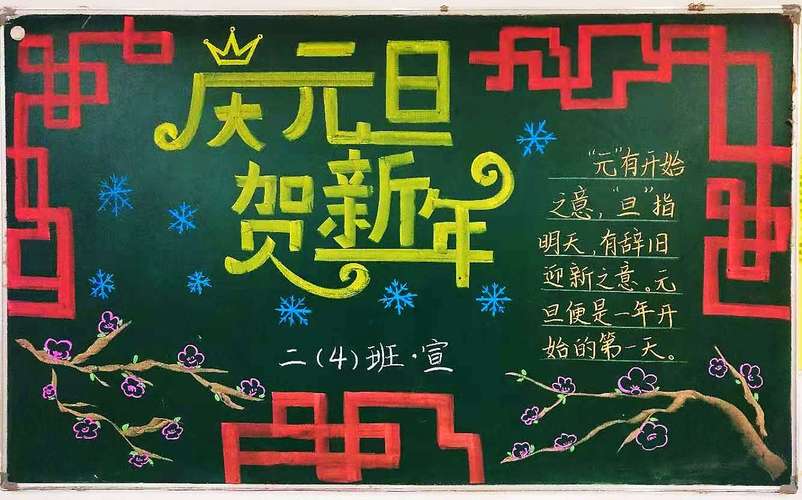 庆元旦
贺新年
二(4)班·宣
"元"有开始
之意，"旦"指
明天，有辞旧
迎新之意。元
旦便是一年开
始的第一天。